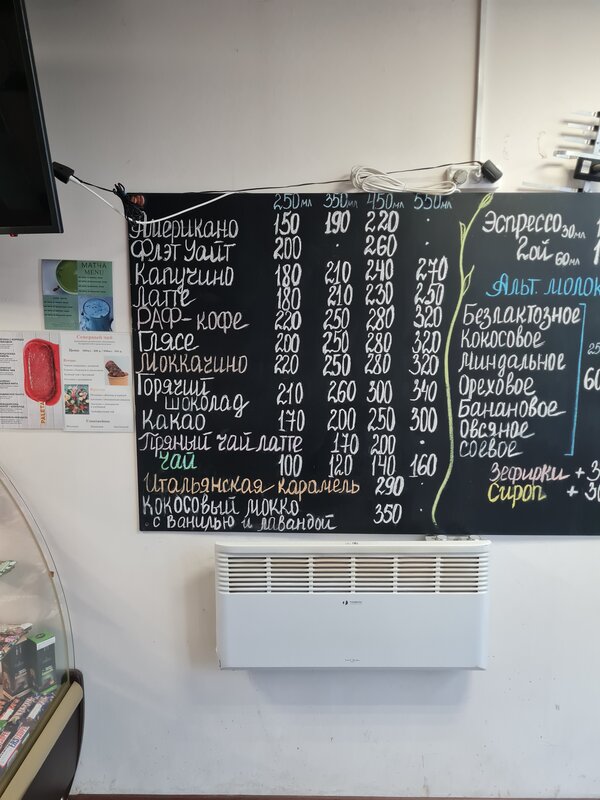 250мл 350мл 450мл 550мл
Американо 150 190 220 .
Флэт Уайт 200 . 260 .
Капучино 180 210 240 270
Латте 180 210 230 250
РАФ-кофе 220 250 280 320
Глясе 200 250 280 320
Моккачино 220 250 280 320
Горячий
шоколад 210 260 300 340
Какао 170 200 250 300
Пряный чай латте 170 200 .
Чай 100 120 140 160
Итальянская карамель 290
Кокосовый мокко
с ванилью и лавандой 350 .
Эспрессо 30мл 1
2ой 60мл 1
Альт. молок
Безлактозное
Кокосовое
Миндальное
Ореховое
Банановое
Овсяное
соевое
25
60
Зефирки + 3
Сироп + 30
МАТЧА
MENU
Северный чай